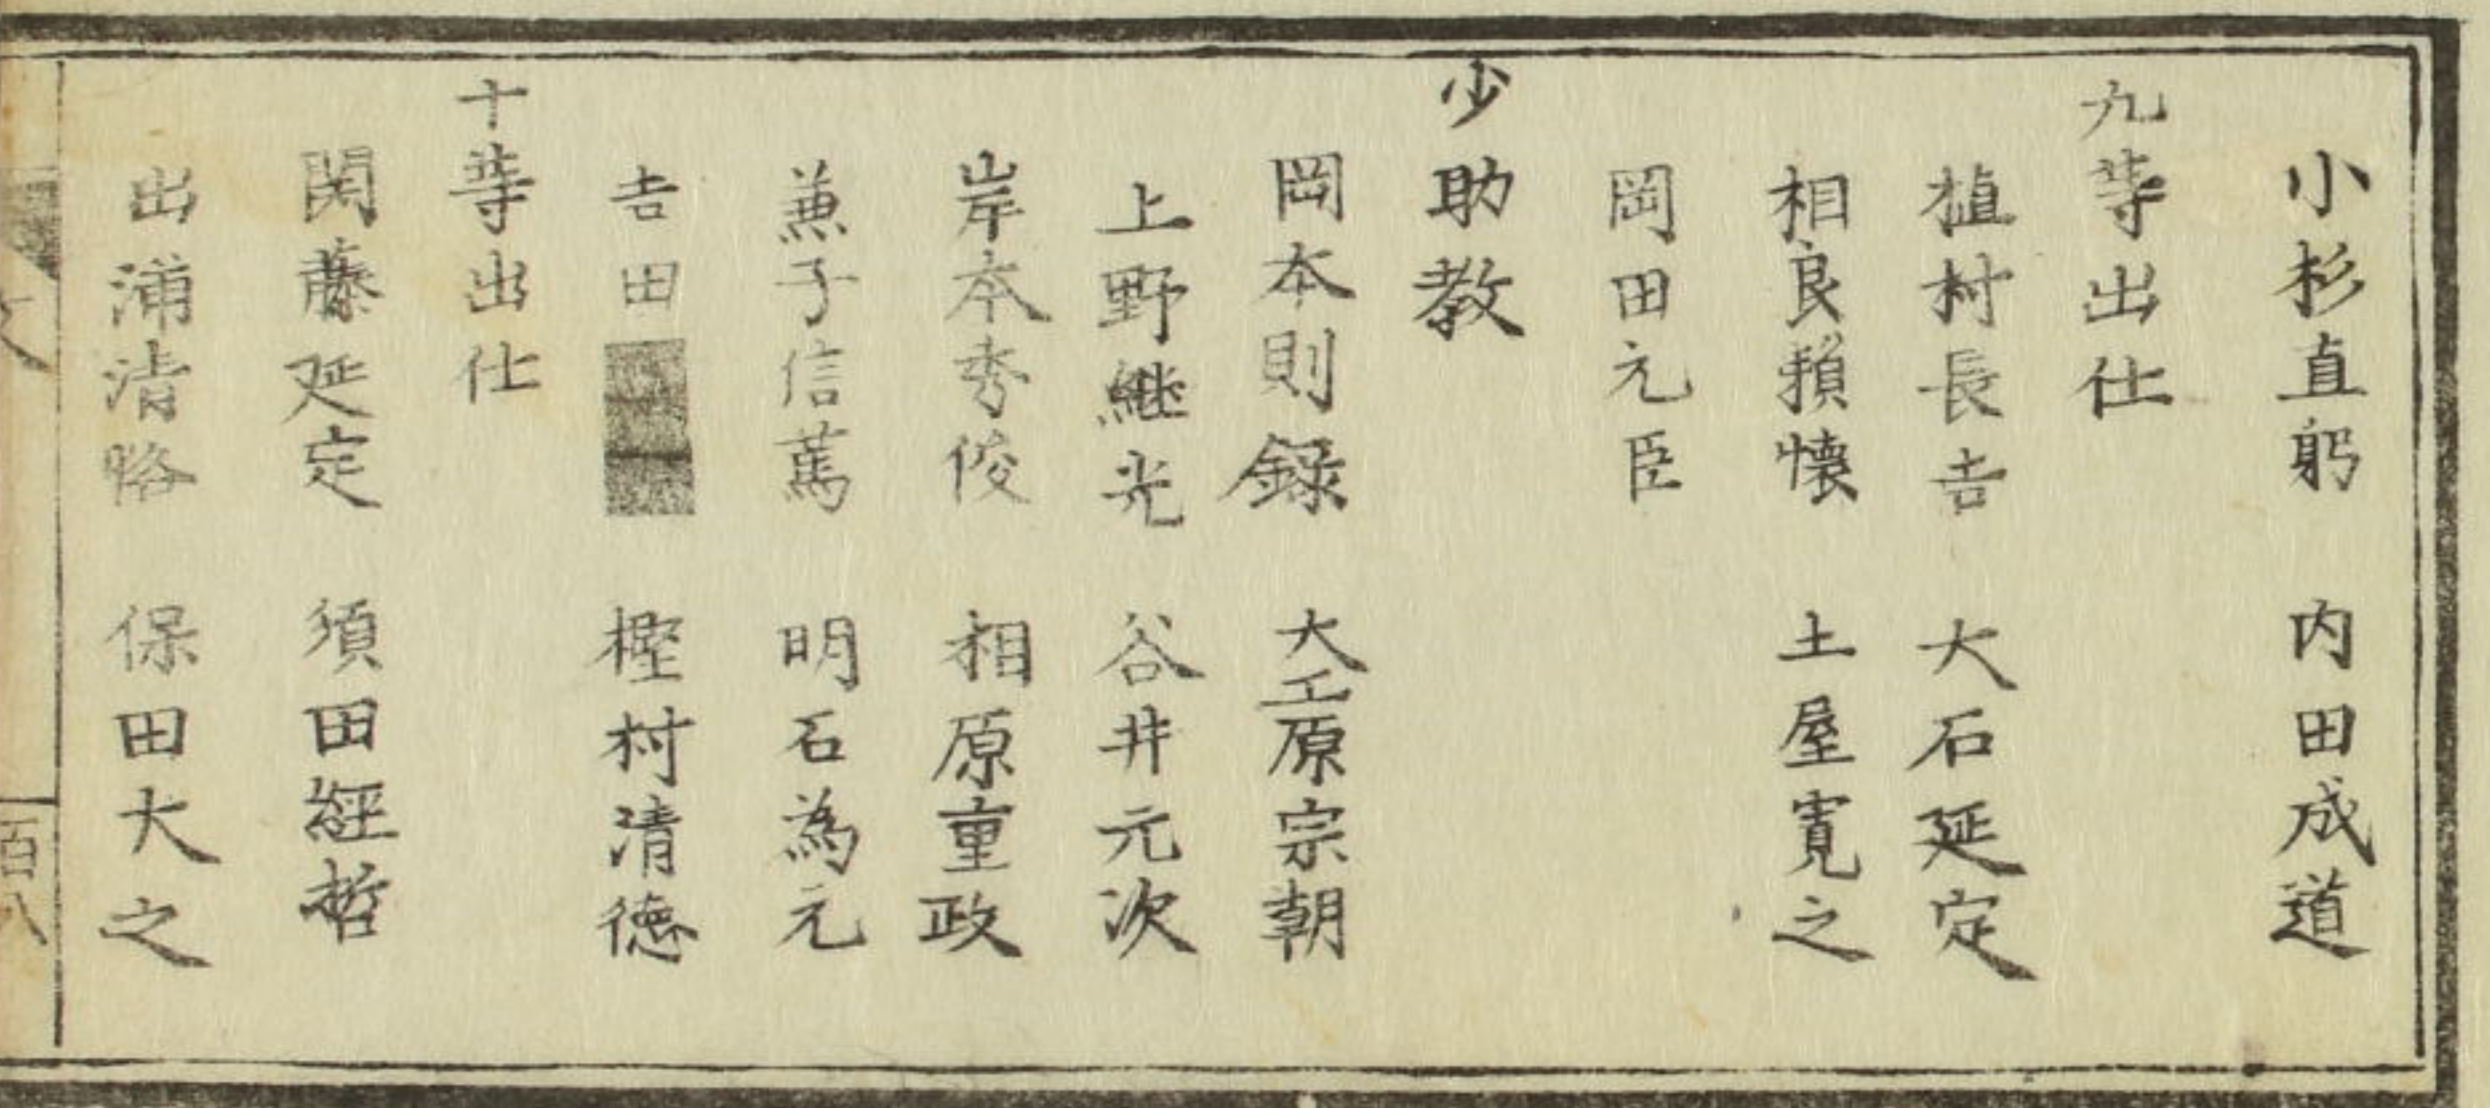 小杉直躬　内田成道
九等出仕
植村長吉　大石延定
相良頼懐　土屋寛之
岡田元臣
少助教
岡本則録　大工原宗朝
上野継光　谷井元次
岸本秀俊　相原重政
兼子信篤　明石為元
吉田　樫村清徳
十等出仕
関藤延定　須田經哲
出浦清略　保田大之
文
百八